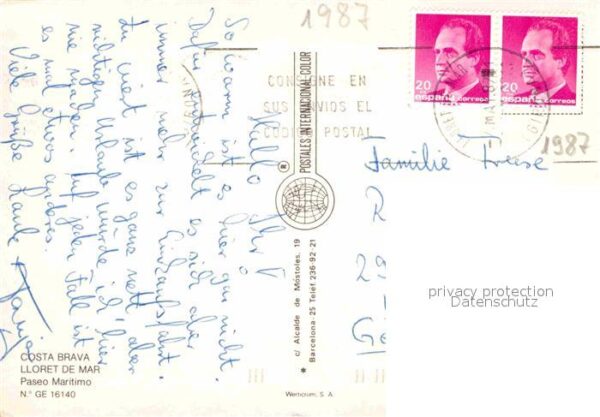 1987
Hallo Ihr!
So warm ist es hier gar nicht.
Dafür es sich aber
immer mehr zur Einkaufsfahrt.
Zu zweit ist es ganz nett, aber
richtigen Urlaub würde ich hier
nie machen. Auf jeden Fall ist
es mal etwas anderes.
Viele Grüße Raule + Tanja
CONSIGNE EN
SUS ENVIOS EL
CODIGO POSTAL
20
españa correos
20
españa correos
1987
Familie Freese
R
29
privacy protection
Datenschutz
® POSTALES INTERNACIONAL COLOR
c/ Alcalde de Móstoles, 19
* Barcelona - 25 Telef. 236-92-21
COSTA BRAVA
LLORET DE MAR
Paseo Marítimo
N.º GE 16140
Wernolum, S. A.